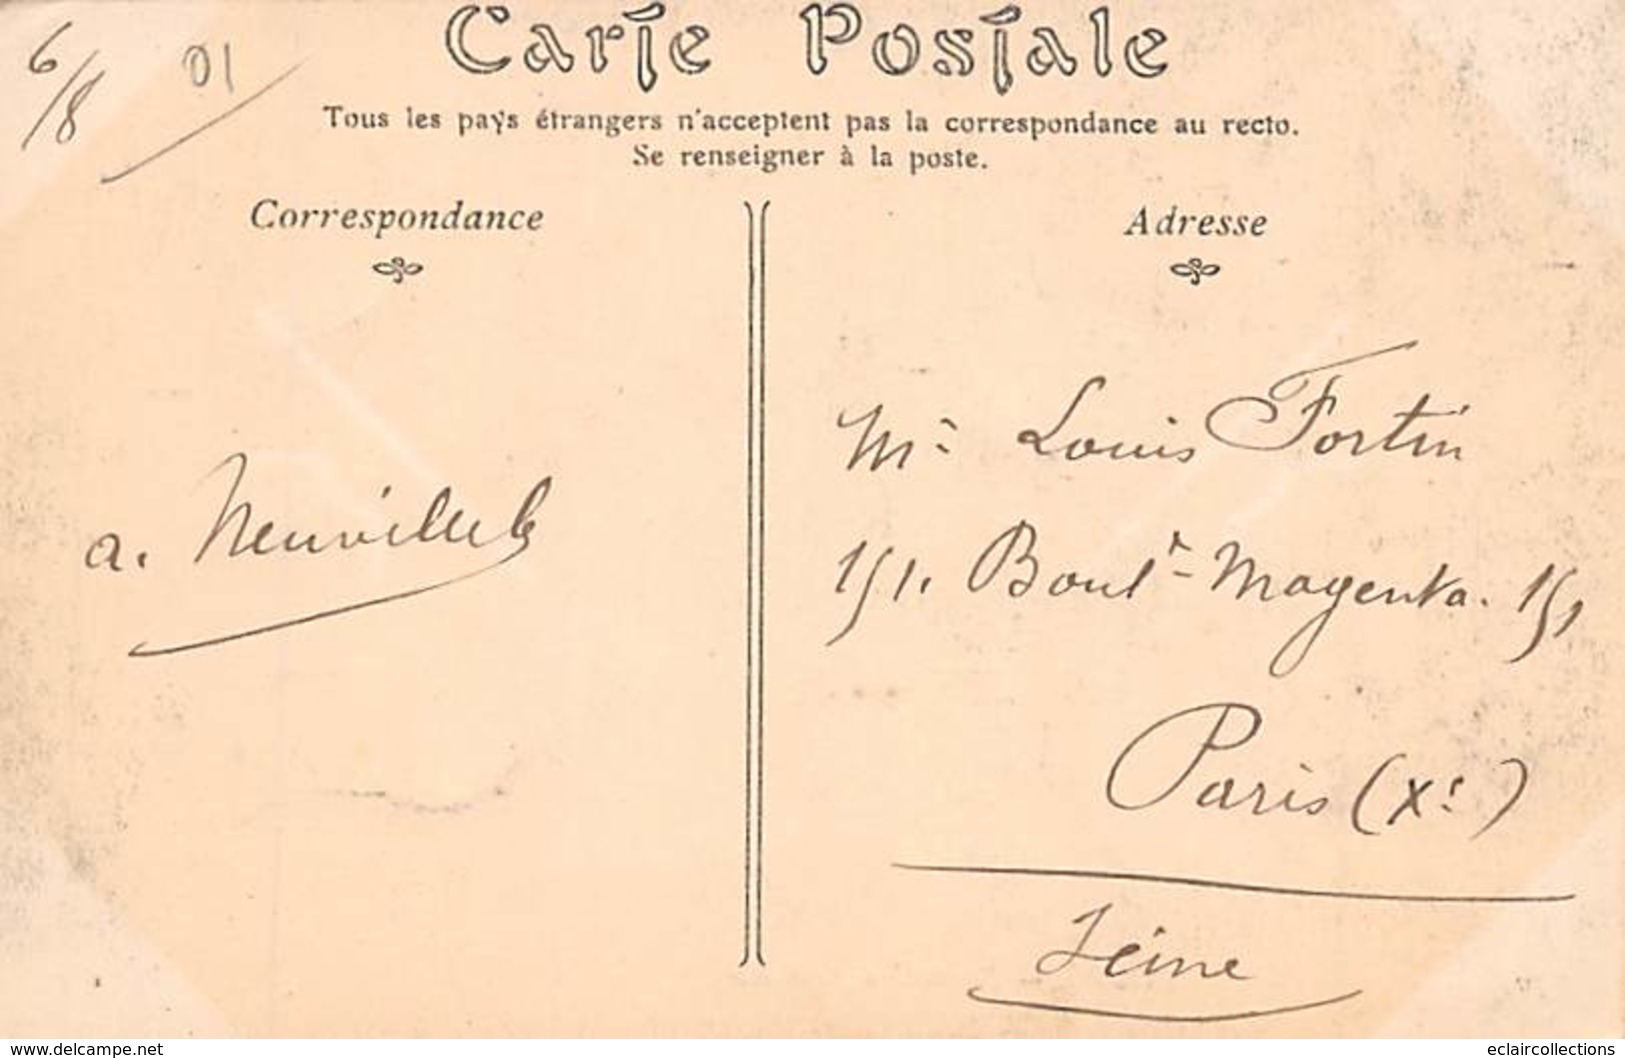 6/8
01
Carte Postale
Tous les pays étrangers n'acceptent pas la correspondance au recto.
Se renseigner à la poste.
Correspondance
Adresse
Mr Louis Fortin
a.
151. Boult Magenta. 151
Paris (Xe)
Seine
www.delcampe.net
eclaircollections